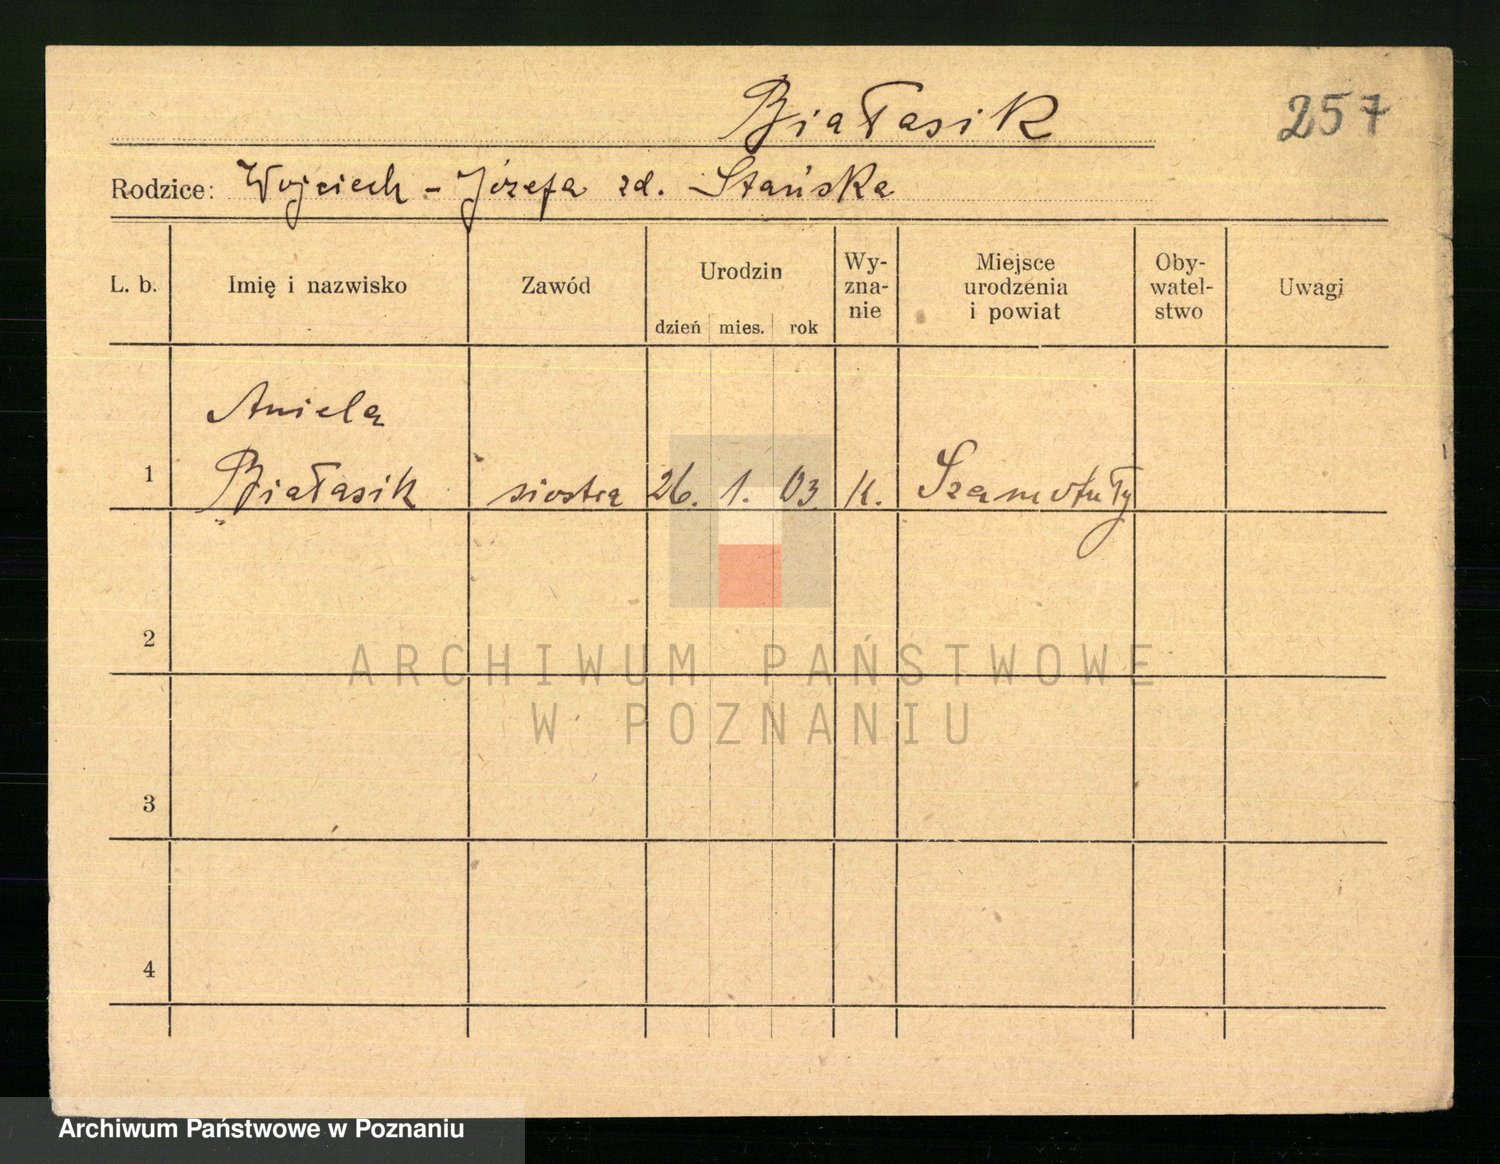 Białasik
257
Rodzice: Wojciech - Józefa zd. Stańska
L. b.
Imię i nazwisko
Zawód
Urodzin
dzień mies. rok
Wy-
zna-
nie
Miejsce
urodzenia
i powiat
Oby-
watel-
stwo
Uwagi
Aniela
1 Białasik siostra 26. 1. 03. K. Szamotuły
2
ARCHIWUM PAŃSTWOWE
W POZNANIU
3
4
Archiwum Państwowe w Poznaniu